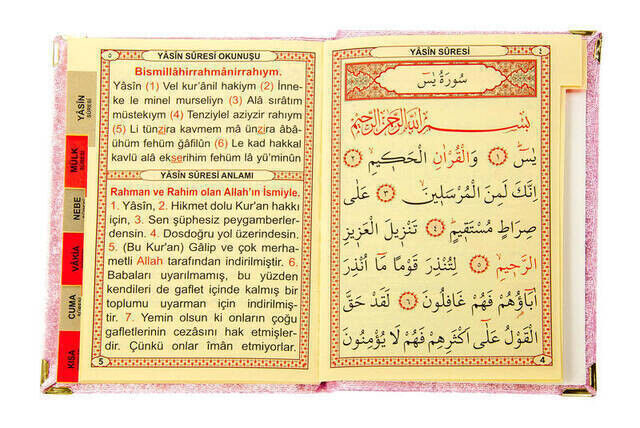 YÂSİN
SÛRESİ
MÜLK
SÛRESİ
NEBE
VÂKIA
CUMA
KISA
٥
YÂSÎN SÛRESİ OKUNUŞU
Bismillâhirrahmânirrahıym.
Yâsîn (1) Vel kur'ânil hakiym (2) İnne-
ke le minel murseliyn (3) Alâ sırâtım
müstekıym (4) Tenziylel aziyzir rahıym
(5) Li tünzira kavmem mâ ünzira âbâ-
ühüm fehüm ğâfilûn (6) Le kad hakkal
kavlü alâ ekserihim fehüm lâ yü'minûn
YÂSÎN SÛRESİ ANLAMI
Rahman ve Rahim olan Allah'ın İsmiyle.
1. Yâsîn, 2. Hikmet dolu Kur'an hakkı
için, 3. Sen şüphesiz peygamberler-
densin. 4. Dosdoğru yol üzerindesin.
5. (Bu Kur'an) Gâlip ve çok merha-
metli Allah tarafından indirilmiştir. 6.
Babaları uyarılmamış, bu yüzden
kendileri de gaflet içinde kalmış bir
toplumu uyarman için indirilmiş-
tir. 7. Yemin olsun ki onların çoğu
gafletlerinin cezasını hak etmişler-
dir. Çünkü onlar îmân etmiyorlar.
5
YÂSÎN SÛRESİ
٤
سُورَةُ يٰسٓ
بِسْمِ اللّٰهِ الرَّحْمٰنِ الرَّحِيمِ
يٰسٓ ﴿١﴾ وَالْقُرْاٰنِ الْحَكِيمِ ﴿٢﴾
اِنَّكَ لَمِنَ الْمُرْسَلِينَ ﴿٣﴾ عَلٰى
صِرَاطٍ مُسْتَقِيمٍ ﴿٤﴾ تَنْزِيلَ الْعَزِيزِ
الرَّحِيمِ ﴿٥﴾ لِتُنْذِرَ قَوْمًا مَٓا اُنْذِرَ
اٰبَٓاؤُهُمْ فَهُمْ غَافِلُونَ ﴿٦﴾ لَقَدْ حَقَّ
الْقَوْلُ عَلٰٓى اَكْثَرِهِمْ فَهُمْ لَا يُؤْمِنُونَ
4